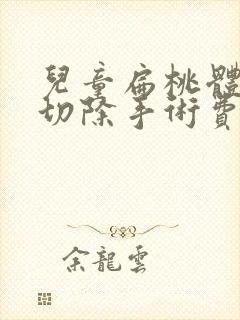 兒童扁桃體
切除手術費
余龍雲